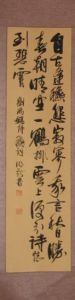 自古逢秋悲寂寥我言秋日勝
春朝晴空一鶴排雲上便引詩情
到碧霄 劉禹錫詩